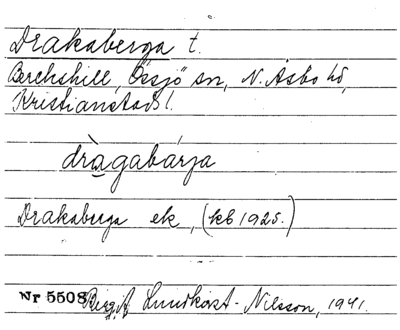 Drakaberga t.
Berchshill, Össjö sn, N. Åsbo hd,
Kristianstads l.
dràgabárja
Drakaberga ek, (kb 1925.)
Nr 5508 Birgit Lundkvist-Nilsson, 1941.